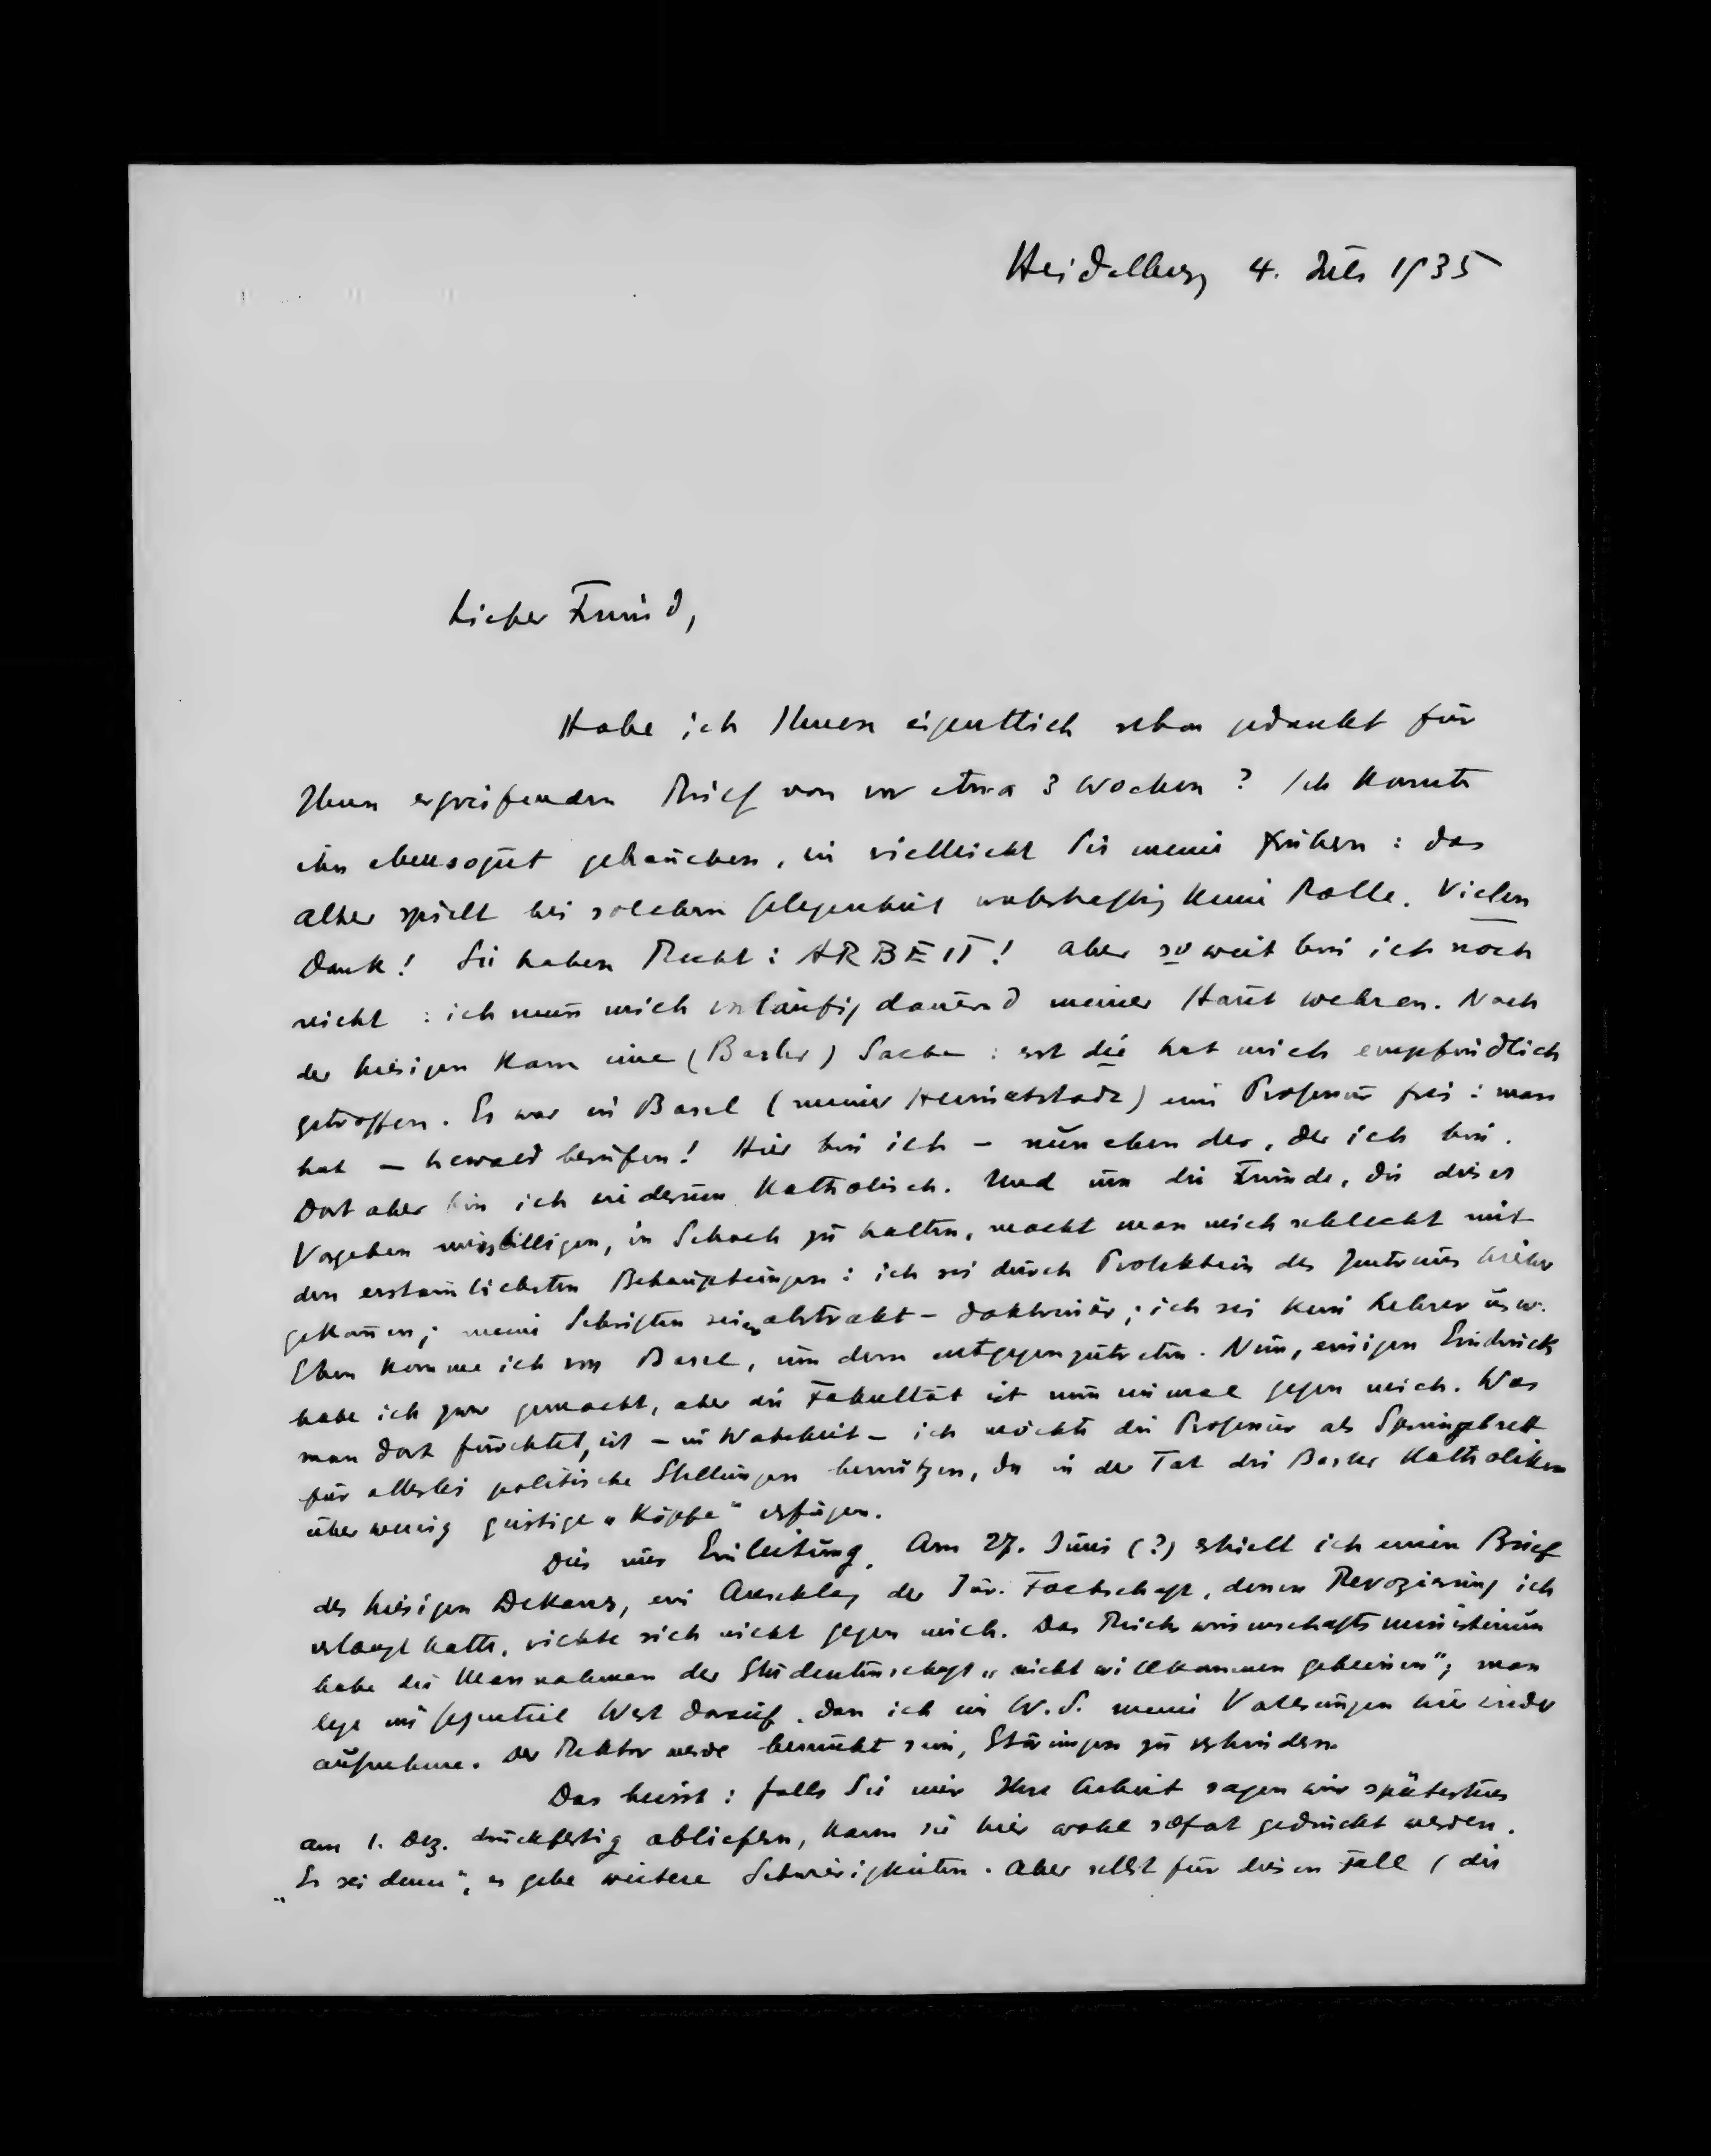 Heidelberg 4. Juli 1935
Lieber Freund,
Habe ich Ihnen eigentlich schon gedankt für
Ihren ergreifenden Brief von vor etwa 3 Wochen? Ich konnte
ihn ebensogut gebrauchen, wie vielleicht Sie meine frühern: das
Alter spielt bei solchen Gelegenheit wahrhaftig keine Rolle. Vielen
Dank! Sie haben Recht: ARBEIT! Aber so weit bin ich noch
nicht: ich muss mich vorläufig dauernd meiner Haut wehren. Nach
der hiesigen kam eine (Basler) Sache: erst die hat mich empfindlich
getroffen. Es war in Basel (meiner Heimatstadt) eine Professur frei: man
hat – Lewald berufen! Hier bin ich – nun eben der, der ich bin.
Dort aber bin ich wiederum katholisch. Und um die Freunde, die dieses
Vorgehen missbilligen, in Schach zu halten, macht man mich schlecht mit
den erstaunlichsten Behauptungen: ich sei durch Protektion des Zentrums hieher
gekommen; meine Schriften seien abstrakt – doktrinär; ich sei kein Lehrer usw.
Eben komme ich von Basel, um dem entgegenzutreten. Nun, einigen Eindruck
habe ich zwar gemacht, aber die Fakultät ist nun einmal gegen mich. Was
man dort fürchtet, ist – in Wahrheit – ich möchte die Professur als Springbrett
für allerlei politische Stellungen benützen, da in der Tat die Basler Katholiken
über wenig geistige „Köpfe" verfügen.
Dies nur Einleitung. Am 27. Juni (?) erhielt ich einen Brief
des hiesigen Dekans, ein Anschlag der Jur. Fachschaft, deren Revozierung ich
verlangt hatte, richte sich nicht gegen mich. Das Reichswissenschaftsministerium
habe die Massnahmen der Studentenschaft „nicht willkommen geheissen"; man
lege im Gegenteil Wert darauf, dass ich im W.S. meine Vorlesungen hier wieder
aufnehme. Der Rektor werde bemüht sein, Störungen zu verhindern.
Das heisst: falls Sie mir Ihre Arbeit sagen wir spätestens
am 1. Dez. druckfertig abliefern, kann sie hier wohl sofort gedruckt werden.
„Es sei denn", es gebe weitere Schwierigkeiten. Aber selbst für diesen Fall (die